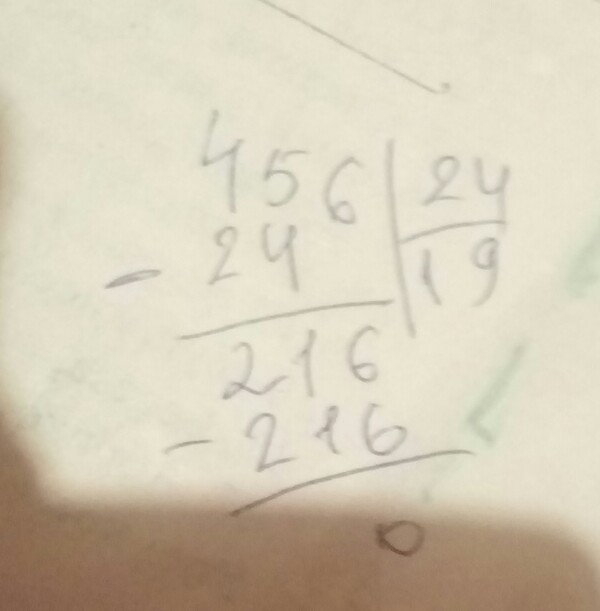 456 | 24
- 24 | 19
216
- 216
0